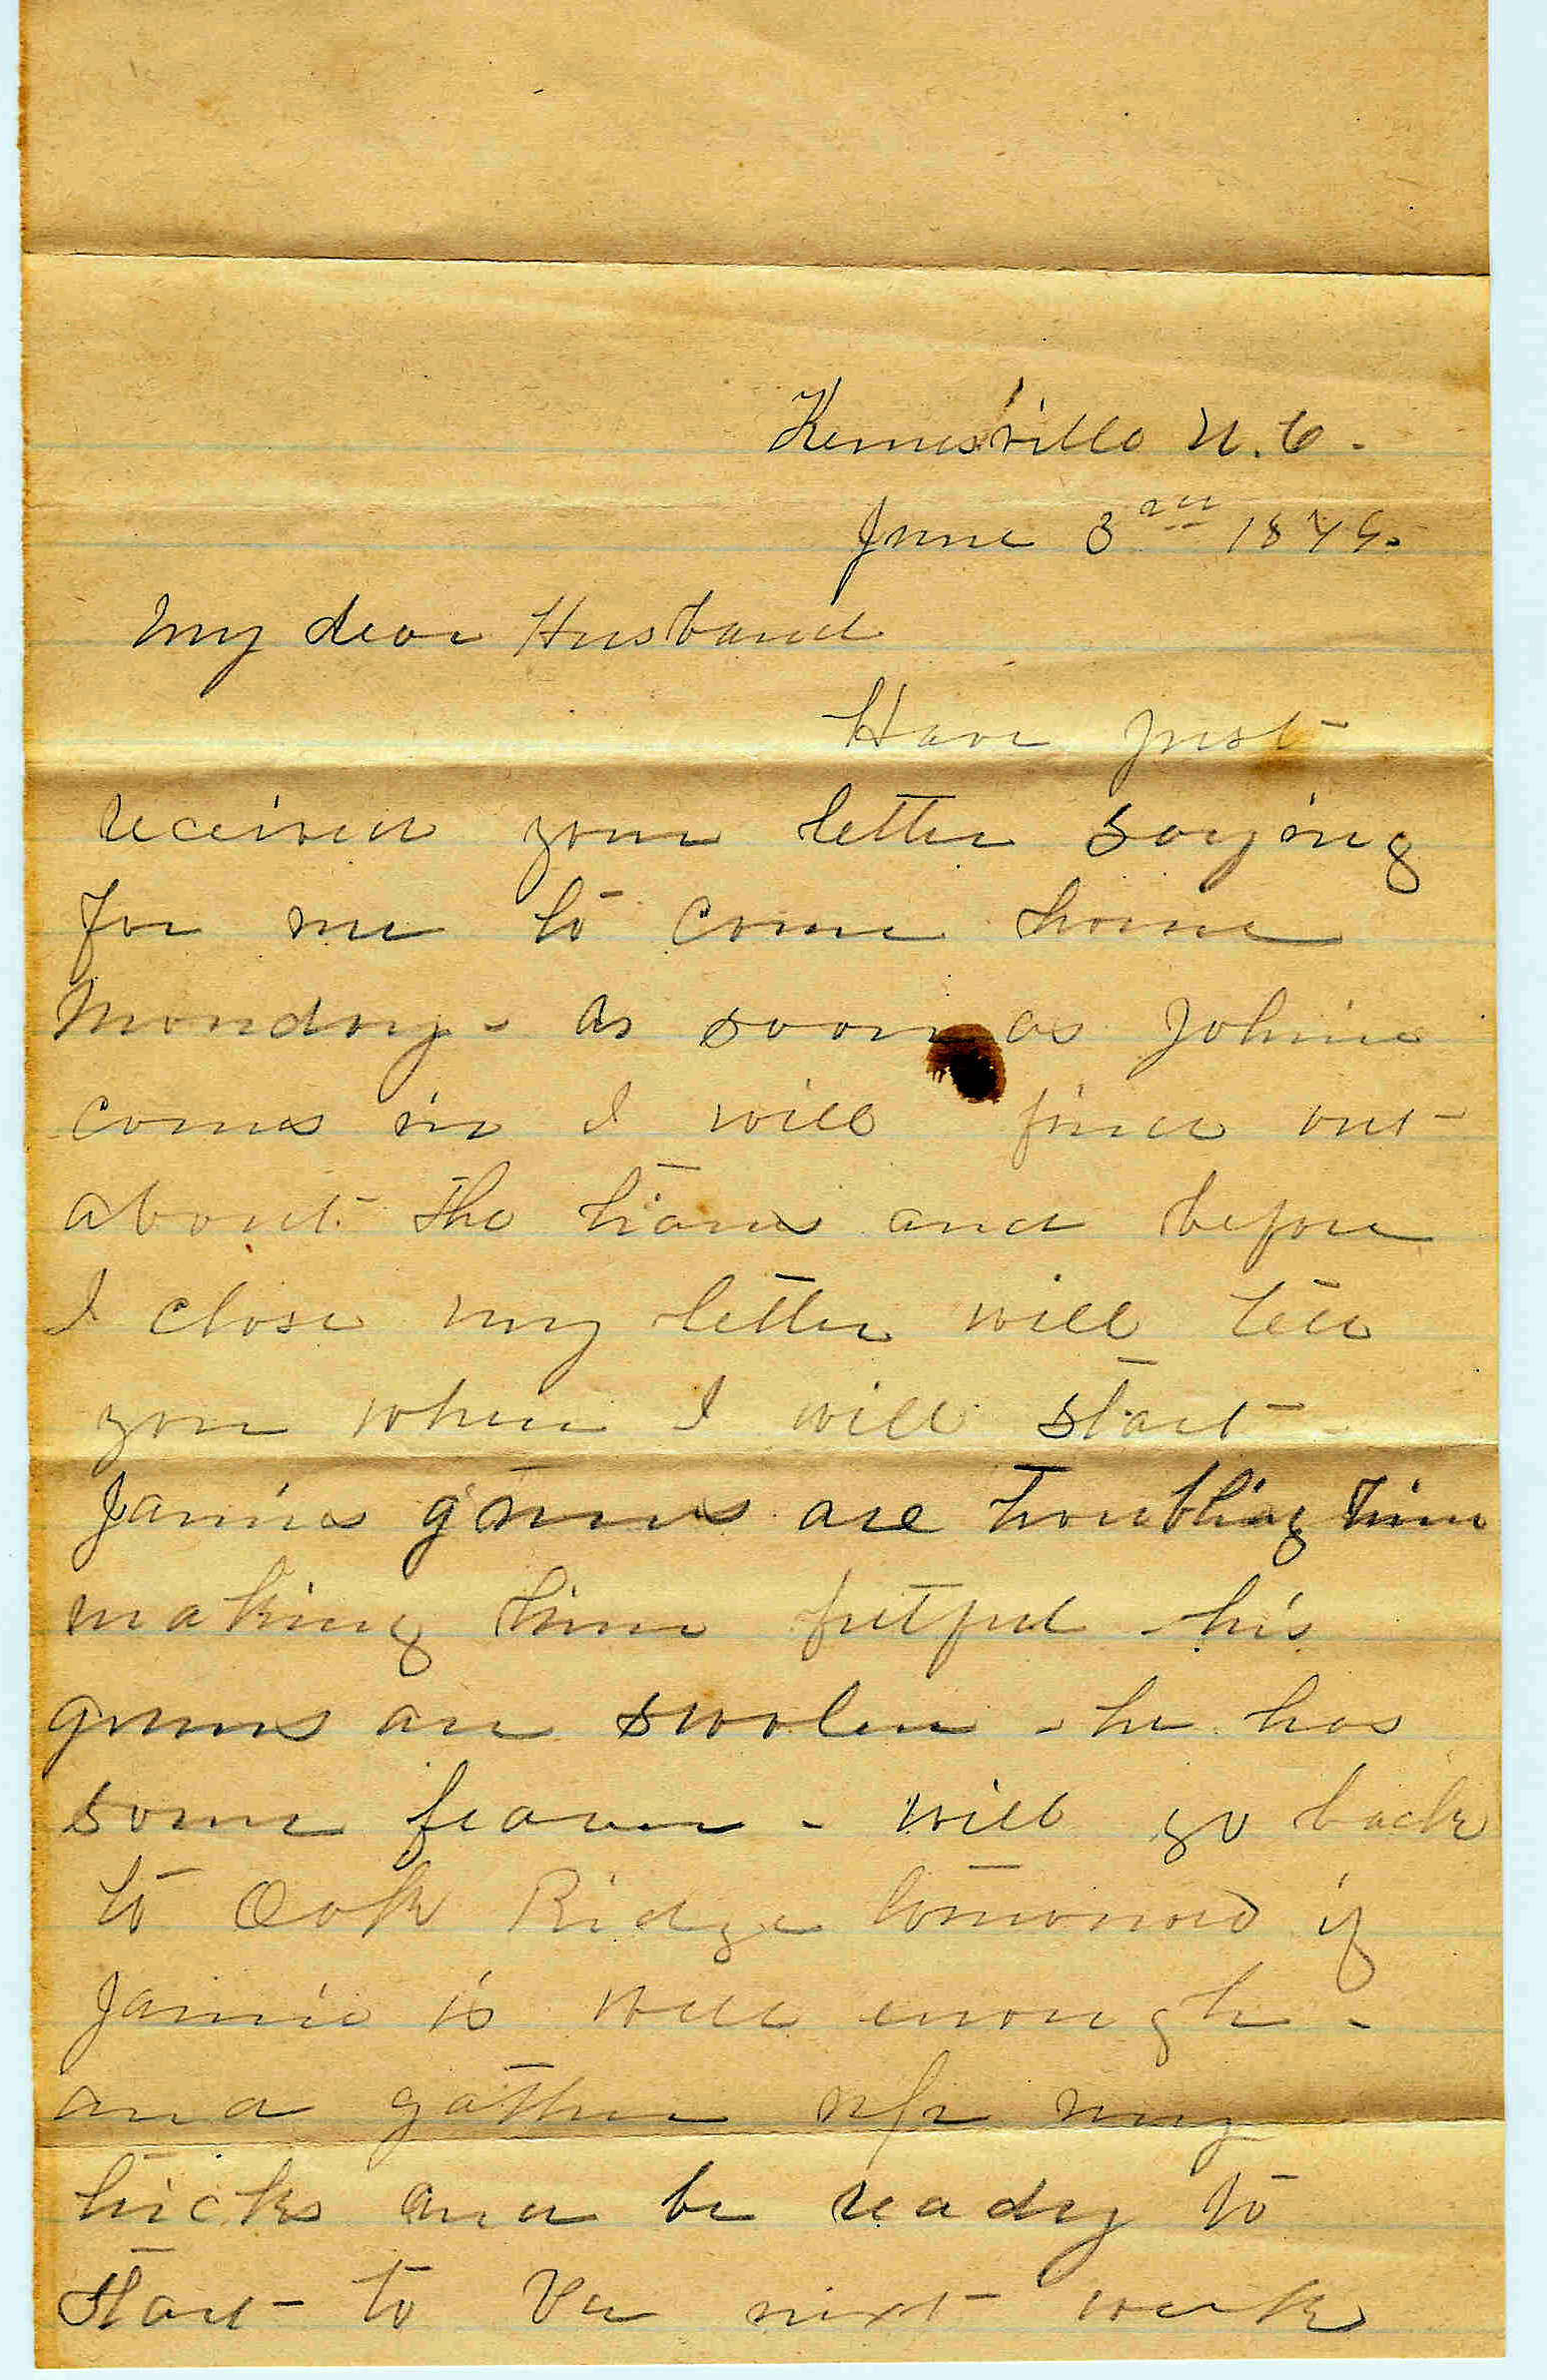 Kernesville N.C.
June 3rd 187
My dear Husband
Have just
received your letter saying
for me to come home
Monday - As soon as Johnie
comes in I will find out
about the trains and before
I close my letter will tell
you when I will start -
Jamies gums are troubling him
making him fretful - his
gums are swolen - he has
some feaver - will go back
to Oak Ridge tomorrow if
Jamie is well enough -
and gather up my
tricks and be ready to
start - to Va next week